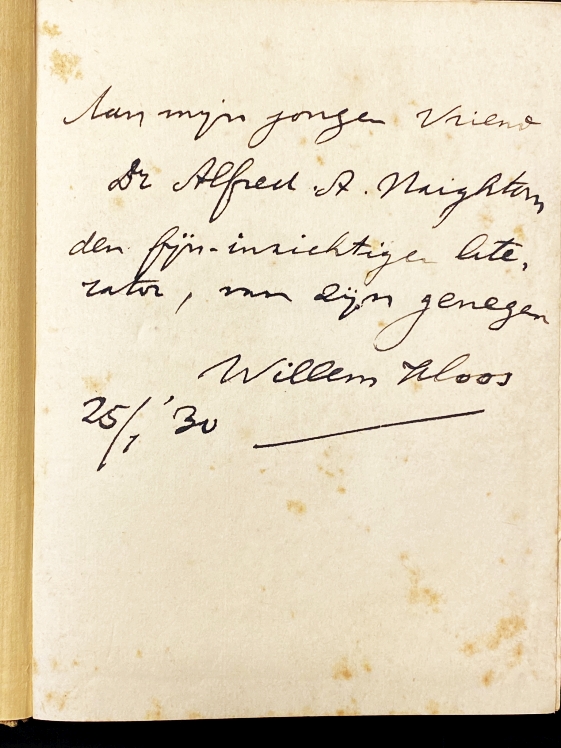 Aan mijn jongen Vriend
Dr Alfred A. Haighton
den fijn-inzichtigen lite-
rator, van zijn genegen
Willem Kloos
25/1 '30